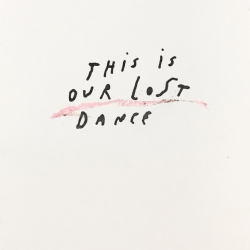 THIS IS
OUR LOST
DANCE